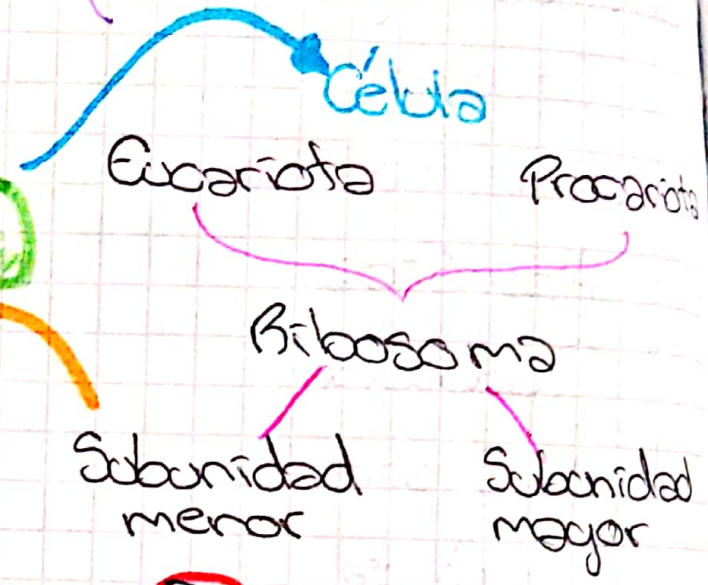 Célula
Eucariota Procariota
Ribosoma
Subunidad Subunidad
menor mayor